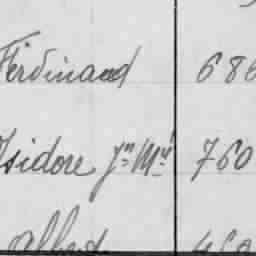 Ferdinand 686
Isidore Jn Mie 760
Albert